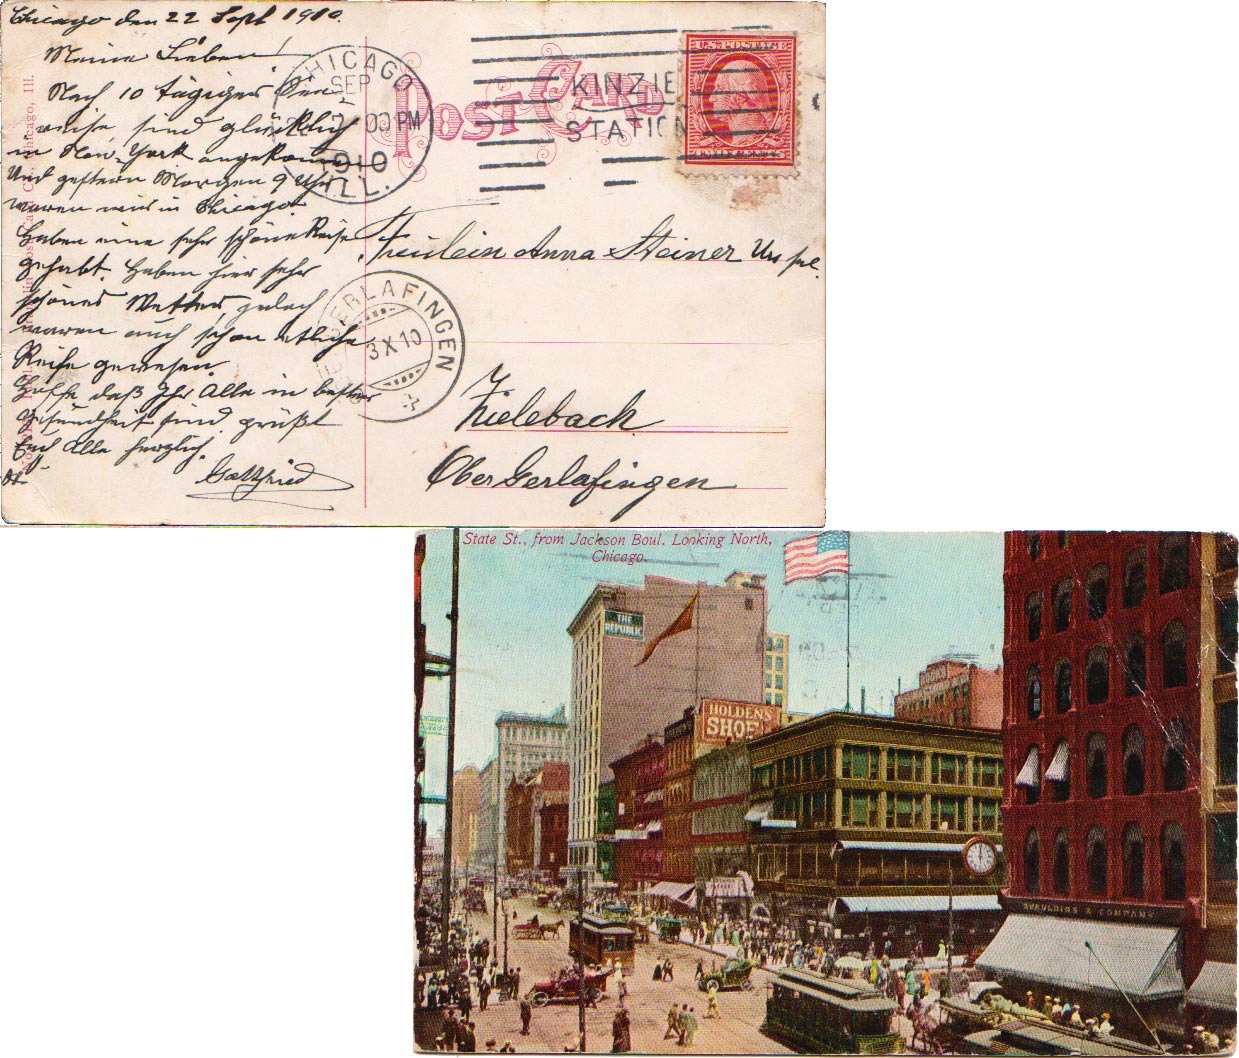 Chicago den 22 Sept 1910.
Meine Lieben!
Nach 10 tägiger
reise sind glücklich
in New-York angekom
Und gestern Morgen 9 Uhr
waren wir in Chicago
Haben eine sehr schöne Reise
gehabt. Haben hier sehr
schönes Wetter, jedoch
waren auch schon etliche
Reife gewesen.
Hoffe daß Ihr Alle in bester
Gesundheit sind grüßt
Euch Alle herzlich.
Gottfried
Chicago, Ill.
POST CARD
CHICAGO
SEP
00 PM
1910
ILL.
KINZIE
STATION
U.S. POSTAGE
Fräulein Anna Steiner
GERLAFINGEN
3 X 10
Zielebach
Ober Gerlafingen
State St., from Jackson Boul. Looking North,
Chicago.
THE
REPUBLIC
HOLDEN'S
SHOE
SPAULDING & COMPANY